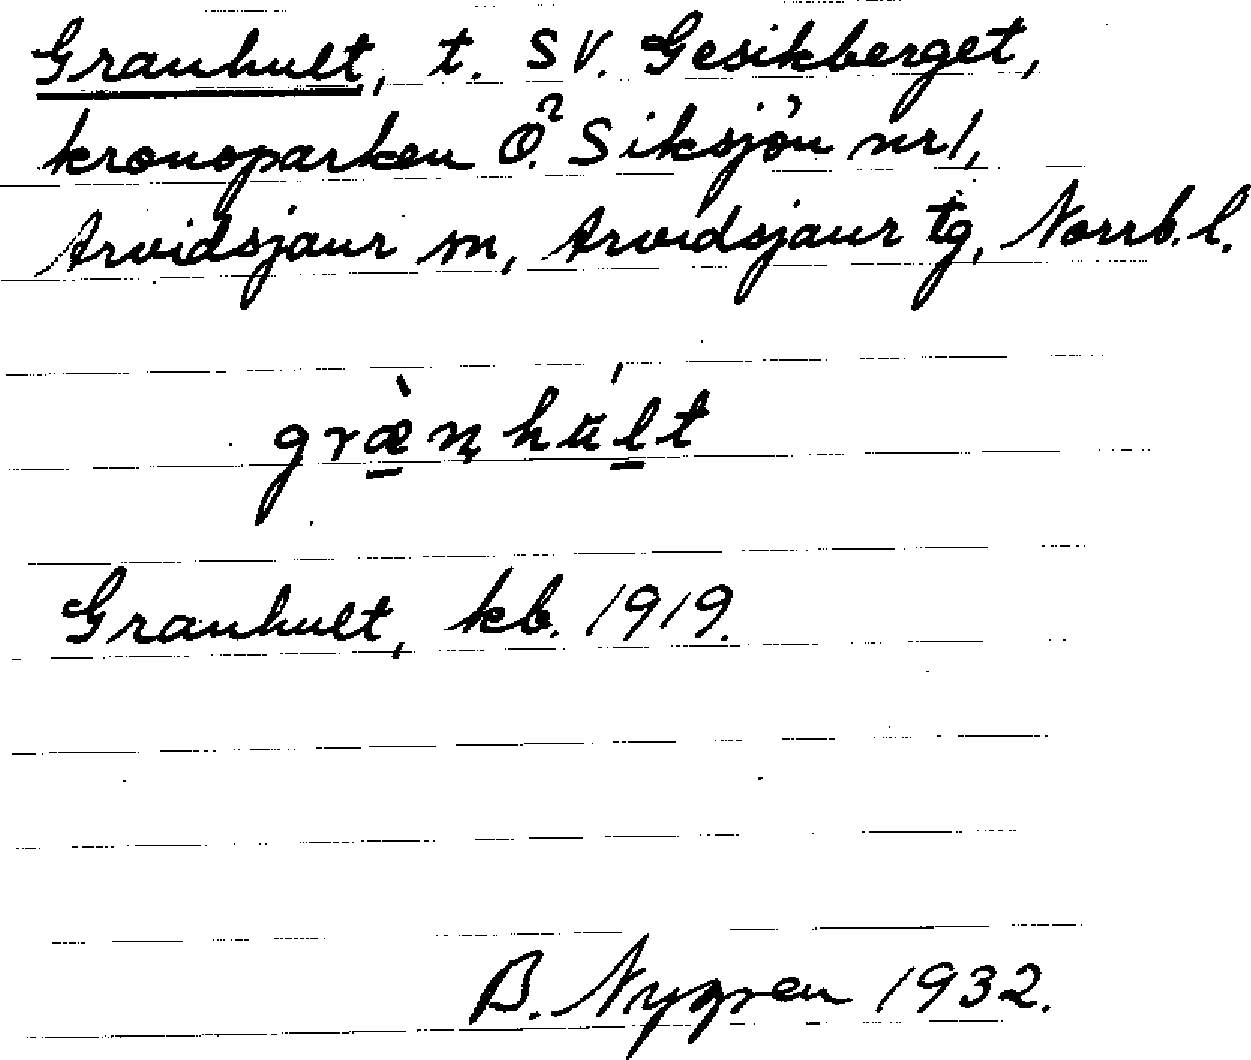 Granhult, t. SV. Gesikberget,
kronoparken Ö. Siksjön nr 1,
Arvidsjaur sn, Arvidsjaur tg, Norrb. l.
græ̀nhu̇́lt
Granhult, kb. 1919.
B. Nygren 1932.